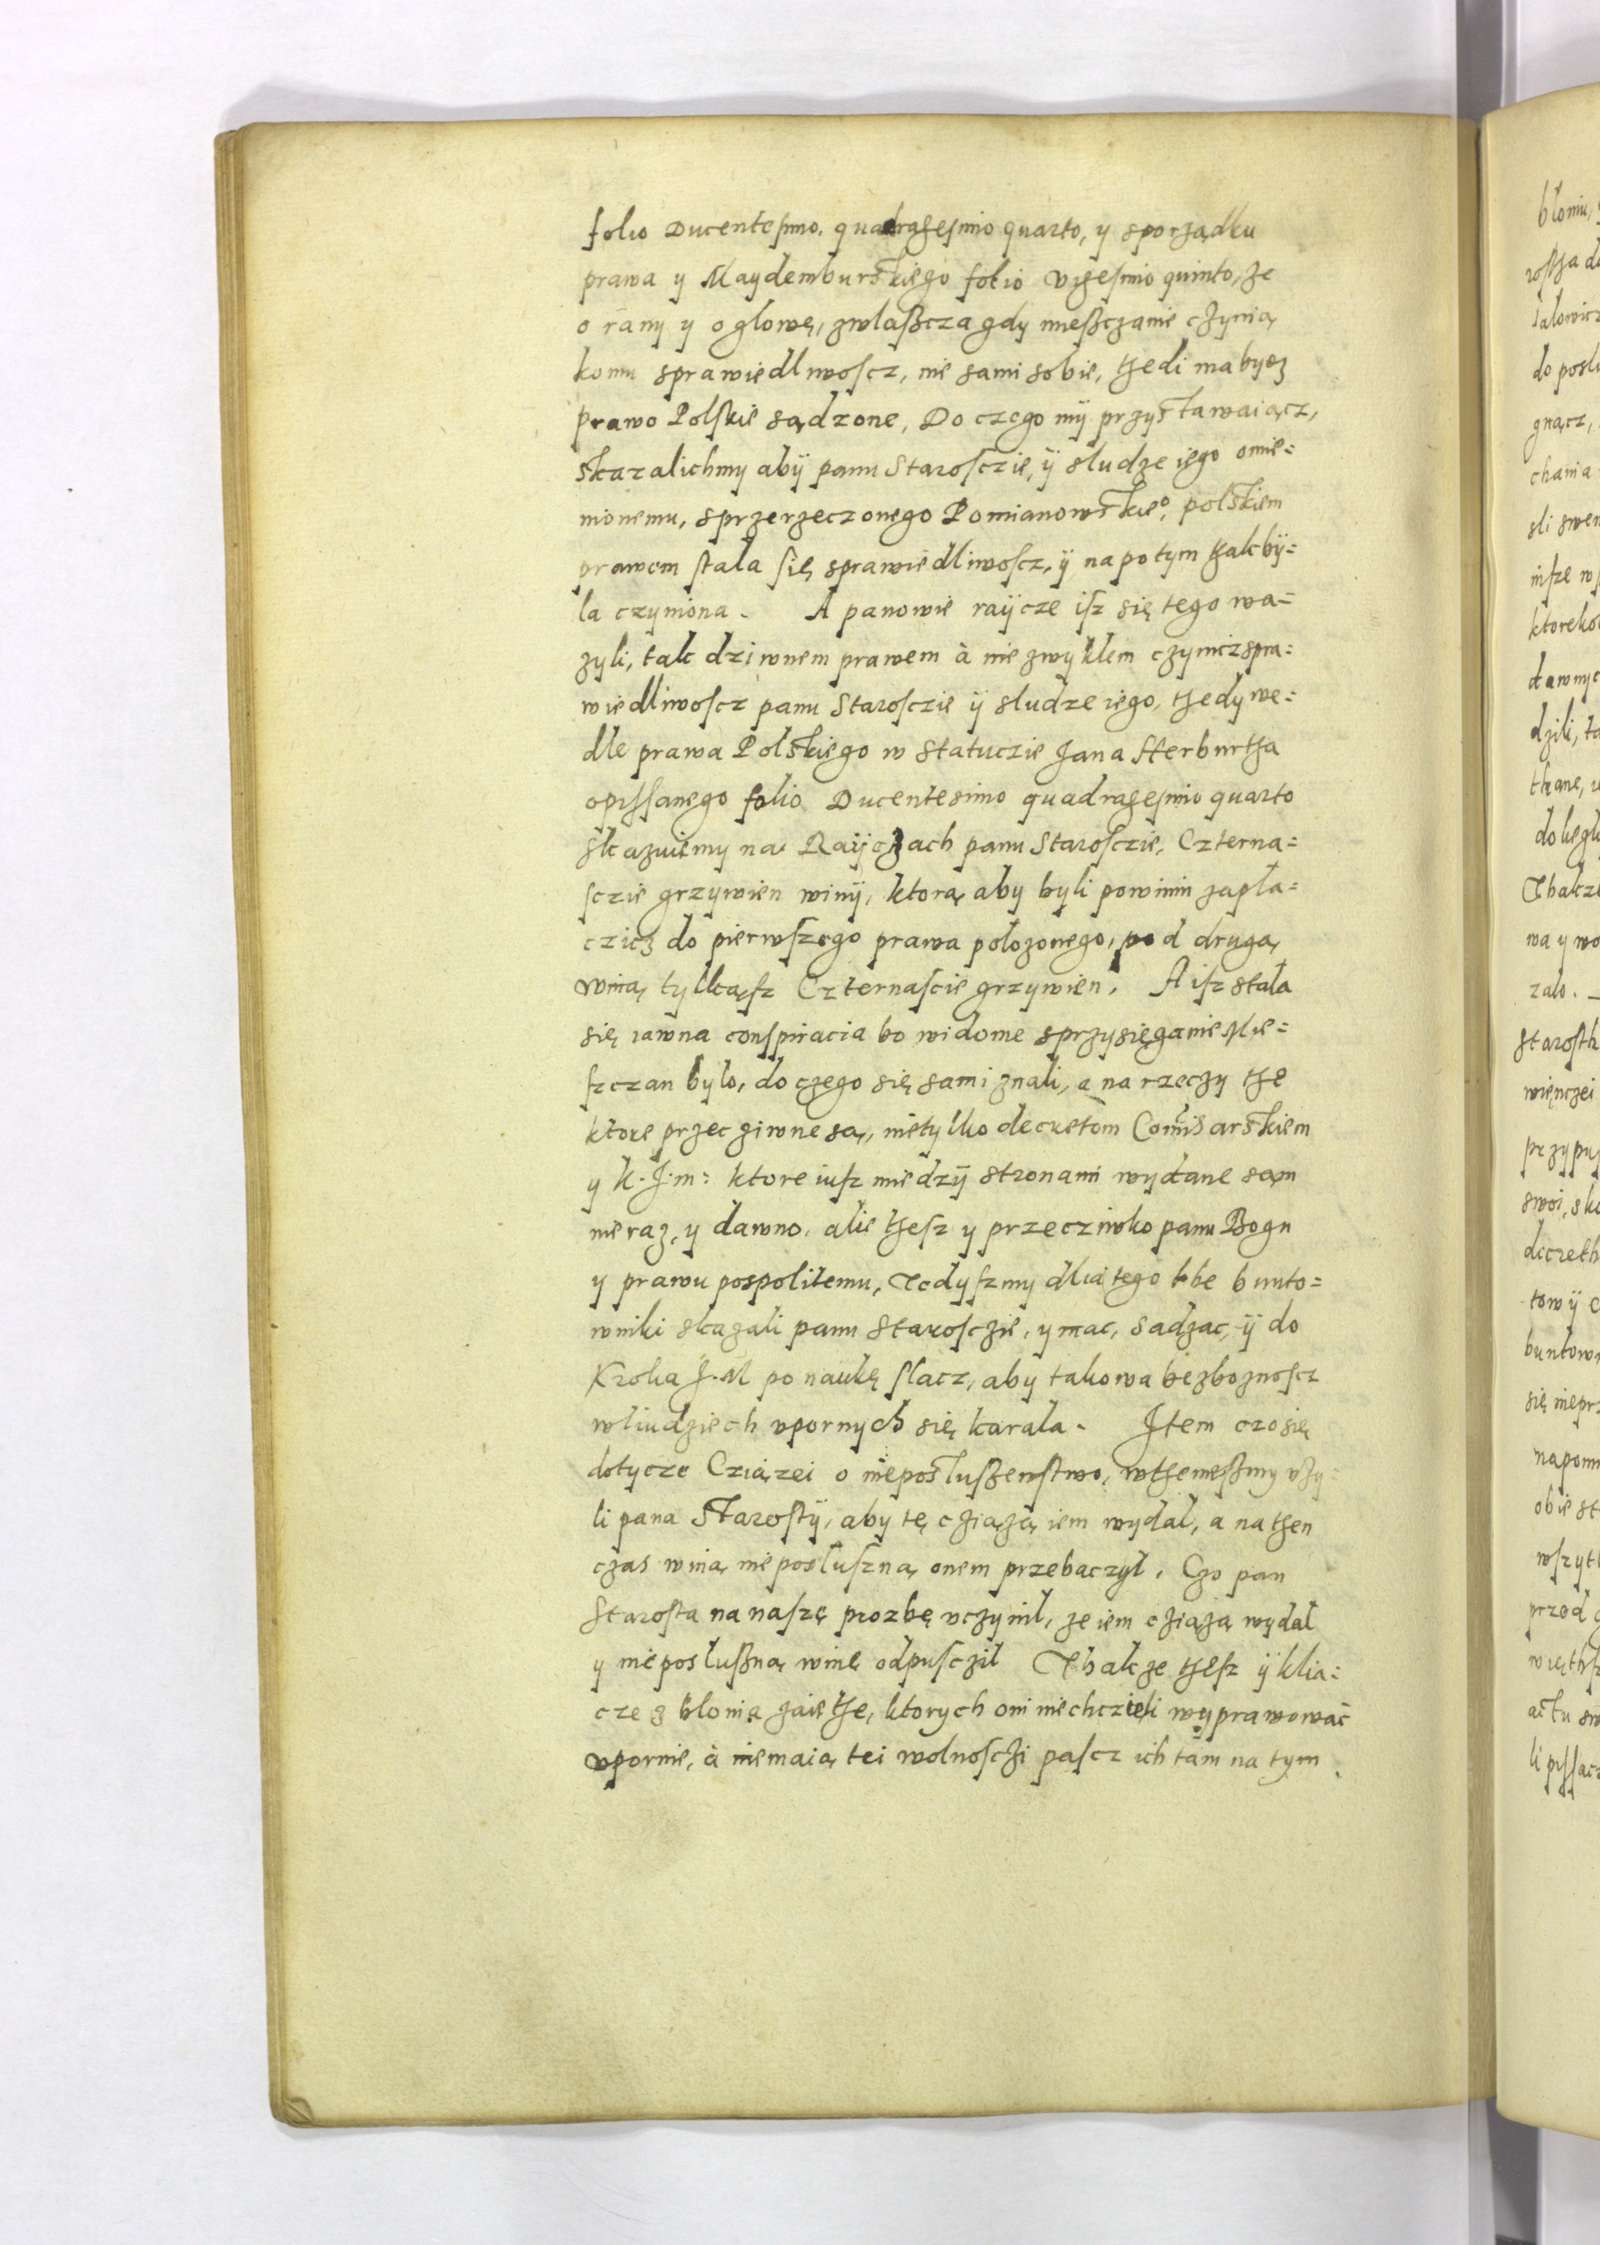 folio Ducentesimo. quadragesimo quarto, y sporządku
prawa y Maydemburskiego folio vigesimo quinto, że
o rany y o głowę, zwlaßcza gdy mießczanie czynią
komu sprawiedlwoscz, nie sami sobie, thedi ma bycz
prawo Polskie sądzone, Do czego mÿ przystawaiącz,
skazalichmy abÿ panu Starosczie, ÿ słudze iego omie=
nionemu, sprzerzeczonego Pomianowskie°, polskiem
prawem stała się sprawiedliwoscz, ÿ na potym thak bÿ=
la czyniona. A panowie raÿcze isz się tego wa=
zyli, tak dziwnem prawem à niezwykłem czynicz spra=
wiedliwoscz panu Starosczie ÿ słudze iego, thedy we=
dle prawa Polskiego w Statuczie Jana Herburtha
opissanego folio Ducentesimo quadragesimo quarto
skazuiemy na Raÿczach panu Starosczie, Czterna=
sczie grzywien winÿ, ktorą aby byli powinni zapła=
czicz do pierwszego prawa położonego, pod drugą
winą tylkąsz Czternascie grzywien. A isz stała
się iawna conspiracia bo widome sprzysięganie Mie=
szczan było, do czego się sami znali, a na rzeczy the
ktore przecziwne są, nietylko decretom Comisarskiem
y k. J. m: ktore iusz miedzÿ stronami wydane są
nieraz, y dawno. alie thesz y przecziwko panu Bogu
y prawu pospolitemu, Tedyszmy dlia tego the bunto=
wniki skazali panu Starosczie, ymac, sadzac, ÿ do
Krola J. M po naukę słacz, aby takowa bezboznoscz
w liudziech upornych się karala. Item czo się
dotycze Cziązei o nieposłußenstwo, wthemeßmy vży=
li pana Starostÿ, aby tę cziążą iem wydał, a na then
czas winą nieposłuszną onem przebaczył. Czo pan
Starosta na naszę prozbę vczynił, że iem cziążą wydał
y nieposłußną winę odpuscził Thakże thesz ÿ klia=
cze z błonia zaięthe, ktorych oni niechczieli wyprawować
vpornie, à niemaią tei wolnosczi pascz ich tam na tym